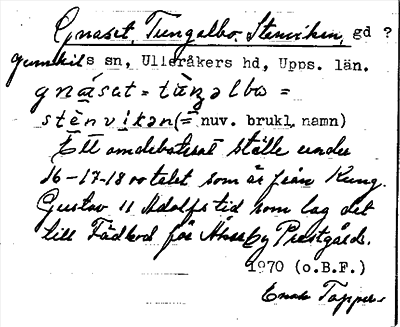 Gnaset, Tungalbo, Stenviken, gd ?
Gunnkils sn, Ulleråkers hd, Upps. län.
gnàset = tùŋalbo =
stènvikən (= nuv. brukl. namn)
Ett omdebaterat ställe under
16-17-18 rotalet som är från Kung.
Gustav II Adolfs tid som lag det
till Fädbod för Prestgård.
1970 (o.B.F.)